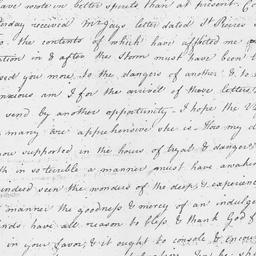 have wrote in better spirits than at present. Co
day received Mr Jays letter dated St Pierres
o. the contents of which have affected me
ation in & after the Storm must have been
sed you more to the dangers of another; & to
anxious am I for the arrival of those letters
send by another opportunity. I hope the V
many are apprehensive she is. How my d
you supported in the hours of tryal & danger
th in so terrible a manner must have awaken
indeed seen the wonders of the deep, & experienc
manner the goodness & mercy of an indulge
inds. have all reason to bless & thank God f
in your favor; & it ought to console & encou